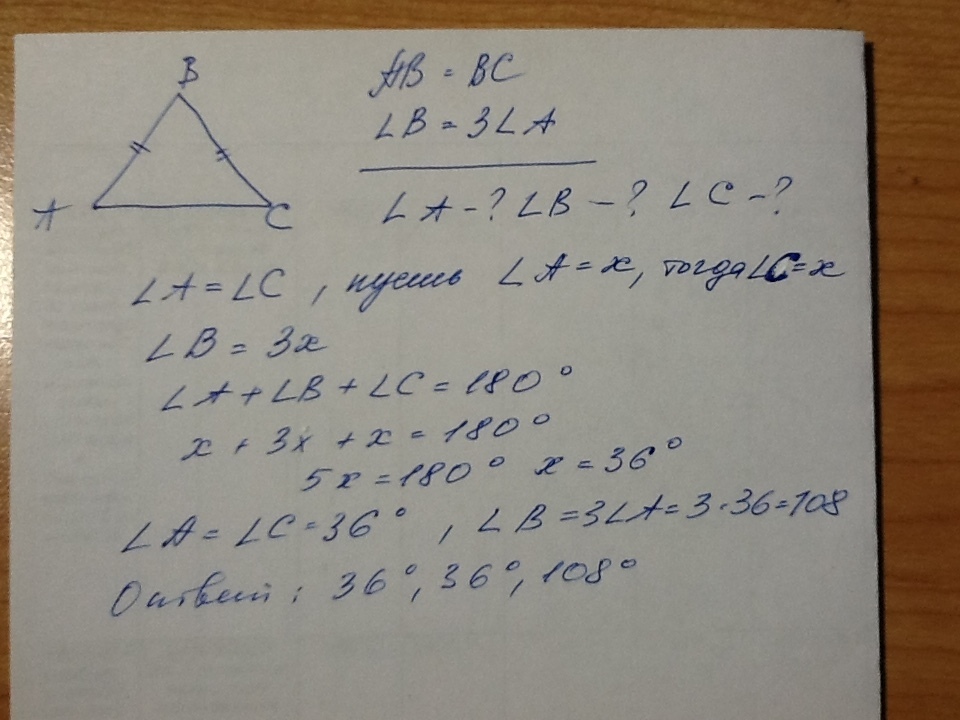 B
A C
AB = BC
∠B = 3∠A
∠A - ? ∠B - ? ∠C - ?
∠A = ∠C , пусть ∠A = x, тогда ∠C = x
∠B = 3x
∠A + ∠B + ∠C = 180°
x + 3x + x = 180°
5x = 180° x = 36°
∠A = ∠C = 36° , ∠B = 3∠A = 3 · 36 = 108
Ответ: 36°, 36°, 108°